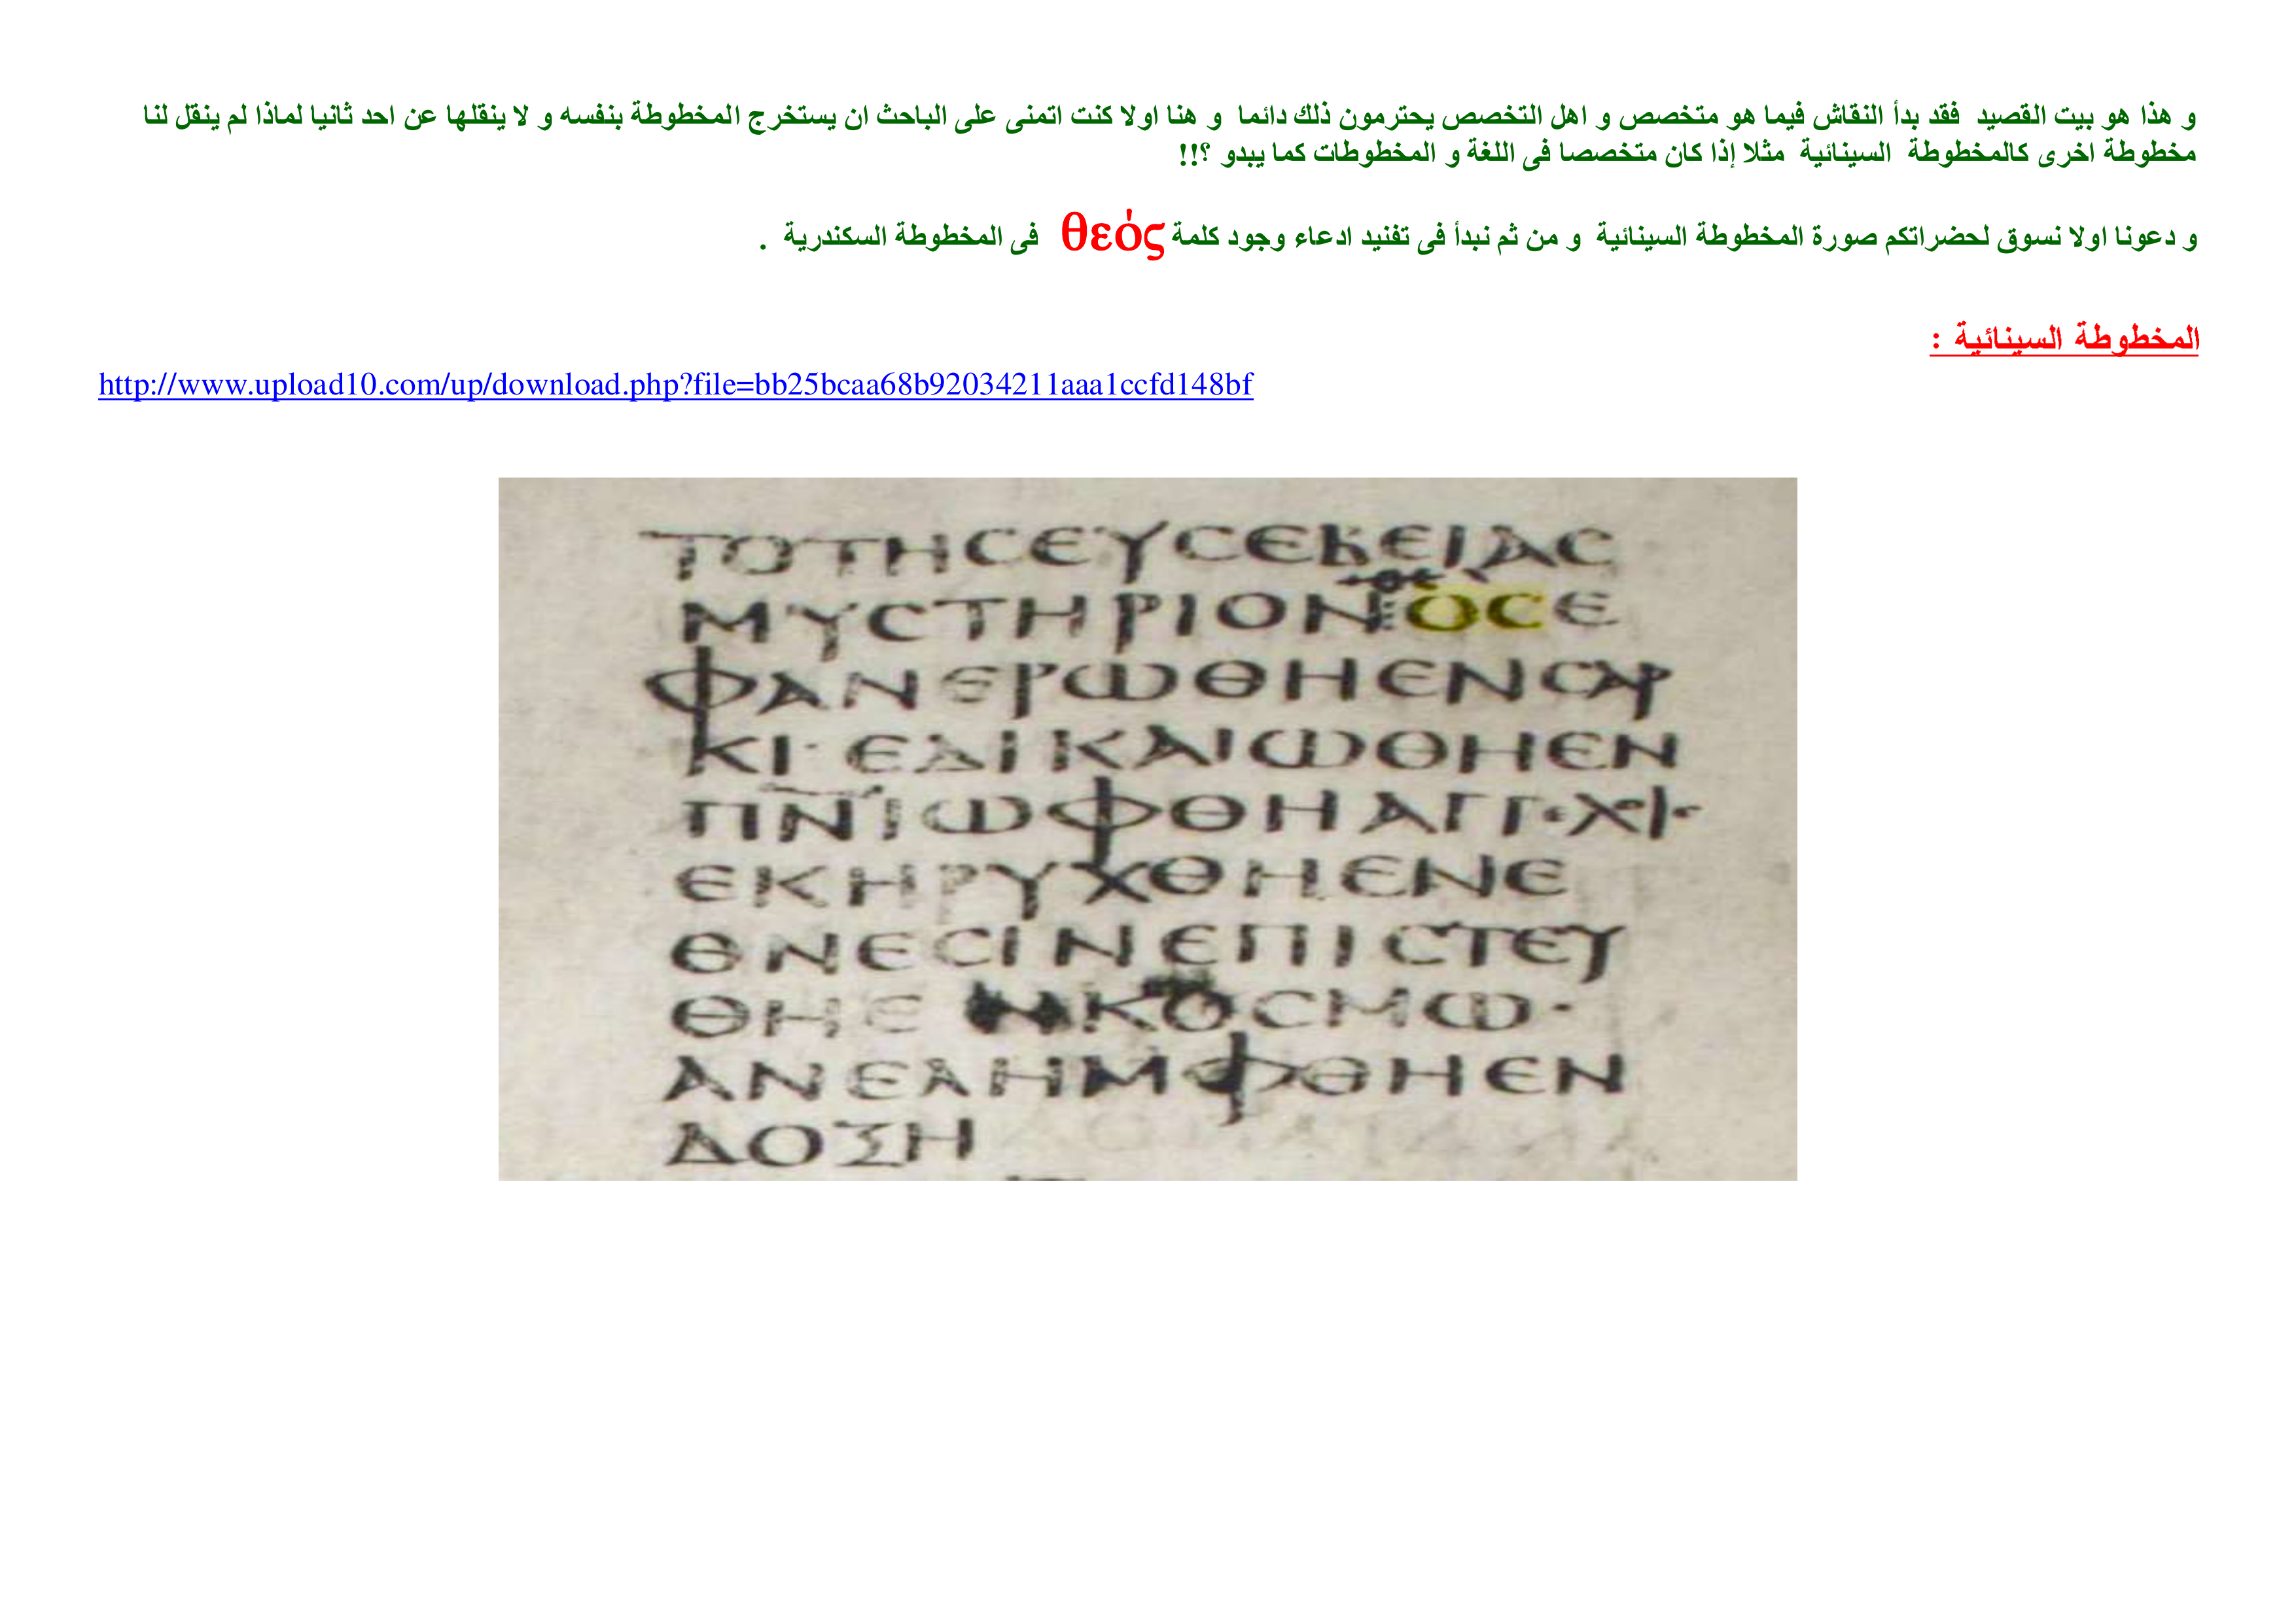 و هذا هو بيت القصيد فقد بدأ النقاش فيما هو متخصص و اهل التخصص يحترمون ذلك دائما و هنا اولا كنت اتمنى على الباحث ان يستخرج المخطوطة بنفسه و لا ينقلها عن احد ثانيا لماذا لم ينقل لنا
مخطوطة اخرى كالمخطوطة السينائية مثلا إذا كان متخصصا فى اللغة و المخطوطات كما يبدو ؟!!
و دعونا اولا نسوق لحضراتكم صورة المخطوطة السينائية و من ثم نبدأ فى تفنيد ادعاء وجود كلمة θεός فى المخطوطة السكندرية .
المخطوطة السينائية :
http://www.upload10.com/up/download.php?file=bb25bcaa68b92034211aaa1ccfd148bf
ΤΟΤΗϹΕΥϹΕΒΕΙΑϹ
ΜΥϹΤΗΡΙΟΝΟϹΕ
ΦΑΝΕΡΩΘΗΕΝϹΑΡ
ΚΙ·ΕΔΙΚΑΙΩΘΗΕΝ
ΠΝΙΩΦΘΗΑΓΓ
ΕΚΗΡΥΧΘΗΕΝΕ
ΘΝΕϹΙΝΕΠΙϹΤΕΥ
ΘΗΕΝΚΟϹΜΩ·
ΑΝΕΛΗΜΦΘΗΕΝ
ΔΟΞΗ